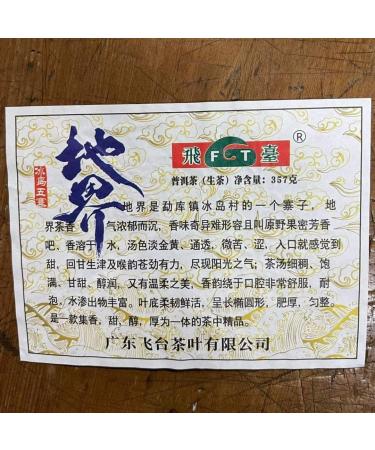 地界
冰岛五寨
飛 FGT 臺 ®
普洱茶（生茶）净含量：357克
地界是勐库镇冰岛村的一个寨子，地
界茶香 气浓郁而沉，香味奇异难形容且叫原野果密芳香
吧，香溶于 水，汤色淡金黄、通透，微苦、涩，入口就感觉到
甜，回甘生津及喉韵苍劲有力，尽现阳光之气；茶汤细稠、饱
满、甘甜、醇润，又有温柔之美，香韵绕于口腔非常舒服，耐
泡，水渗出物丰富。叶底柔韧鲜活，呈长椭圆形，肥厚，匀整，
是一款集香，甜，醇，厚为一体的茶中精品。
广东飞台茶叶有限公司